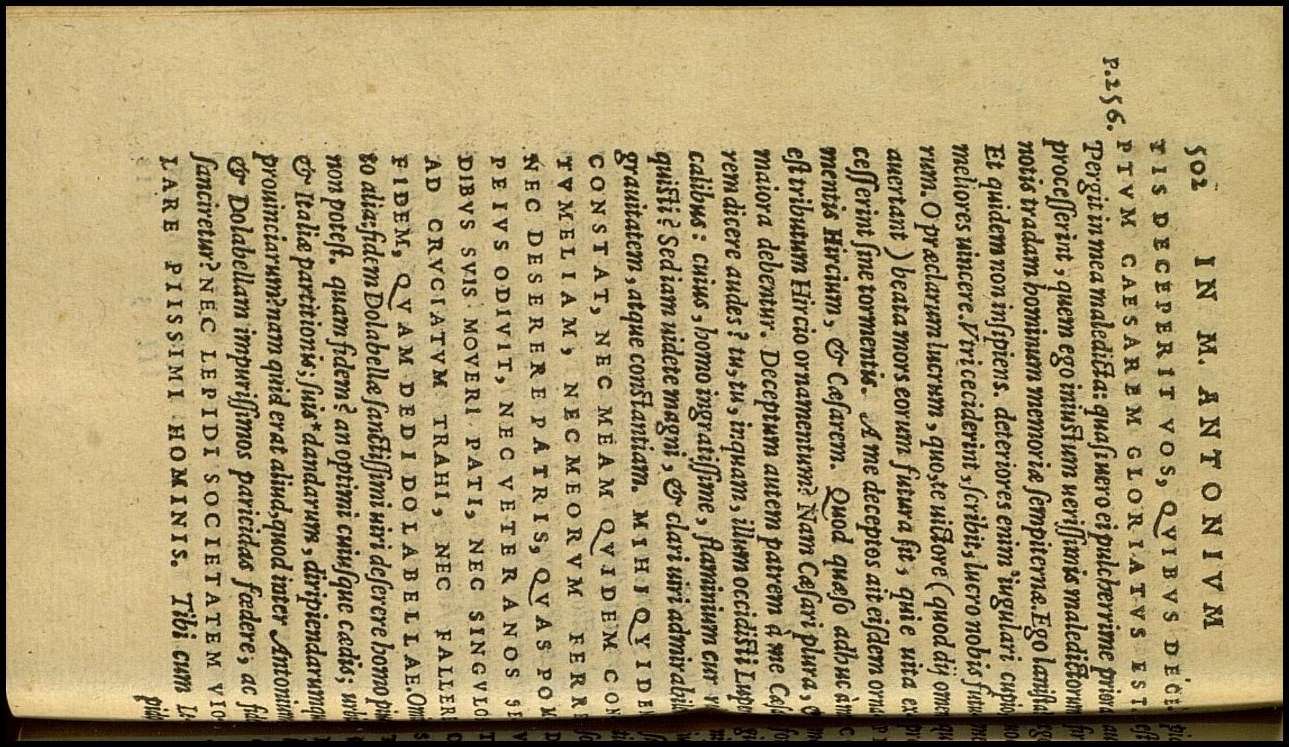 502 IN M. ANTONIVM
TIS DECEPERIT VOS, QVIBVS DECE
PTVM CAESAREM GLORIATVS EST
P.256. Pergit in mea maledicta: quasi uero ei pulcherrime priora
processerint, quem ego iniustum uerissimis maledictorum
notis tradam hominum memoriæ sempiternæ. Ego lanista
Et quidem non insipiens. deteriores enim iugulari cupio,
meliores uincere. Viri ceciderint, scribit, lucro nobis futu
rum. O præclarum lucrum, quo, te uictore (quod dij ome
auertant) beata mors eorum futura sit, qui e uita ex
cesserint sine tormentis. A me deceptos ait eisdem orna
mentis Hircium, & Cæsarem. Quod quæso adhuc à m
est tributum Hircio ornamentum? Nam Cæsari plura, &
maiora debentur. Deceptum autem patrem à me Cæsa
rem dicere audes? tu, tu, inquam, illum occidisti Luper
calibus: cuius, homo ingratissime, flaminium cur
quisti? Sed iam uidete magni, & clari uiri admirabile
grauitatem, atque constantiam. MIHI QVIDEM
CONSTAT, NEC MEAM QVIDEM CON
TVMELIAM, NEC MEORVM FERRE
NEC DESERERE PATRIS, QVAS POM
PEIVS ODIVIT, NEC VETERANOS SE
DIBVS SVIS MOVERI PATI, NEC SINGVLO
AD CRVCIATVM TRAHI, NEC FALLERE
FIDEM, QVAM DEDI DOLABELLAE. Omi
to alia: fidem Dolabellæ sanctissimi uiri deserere homo pi
non potest. quam fidem? an optimi cuiusque cædis; urbi
& Italiæ partitionis; suis* dandarum, diripiendarumq
prouinciarum? nam quid erat aliud, quod inter Antonium
& Dolabellam impurissimos paricidas fœdere, ac fide
sanciretur? NEC LEPIDI SOCIETATEM VIO
LARE PIISSIMI HOMINIS. Tibi cum Le